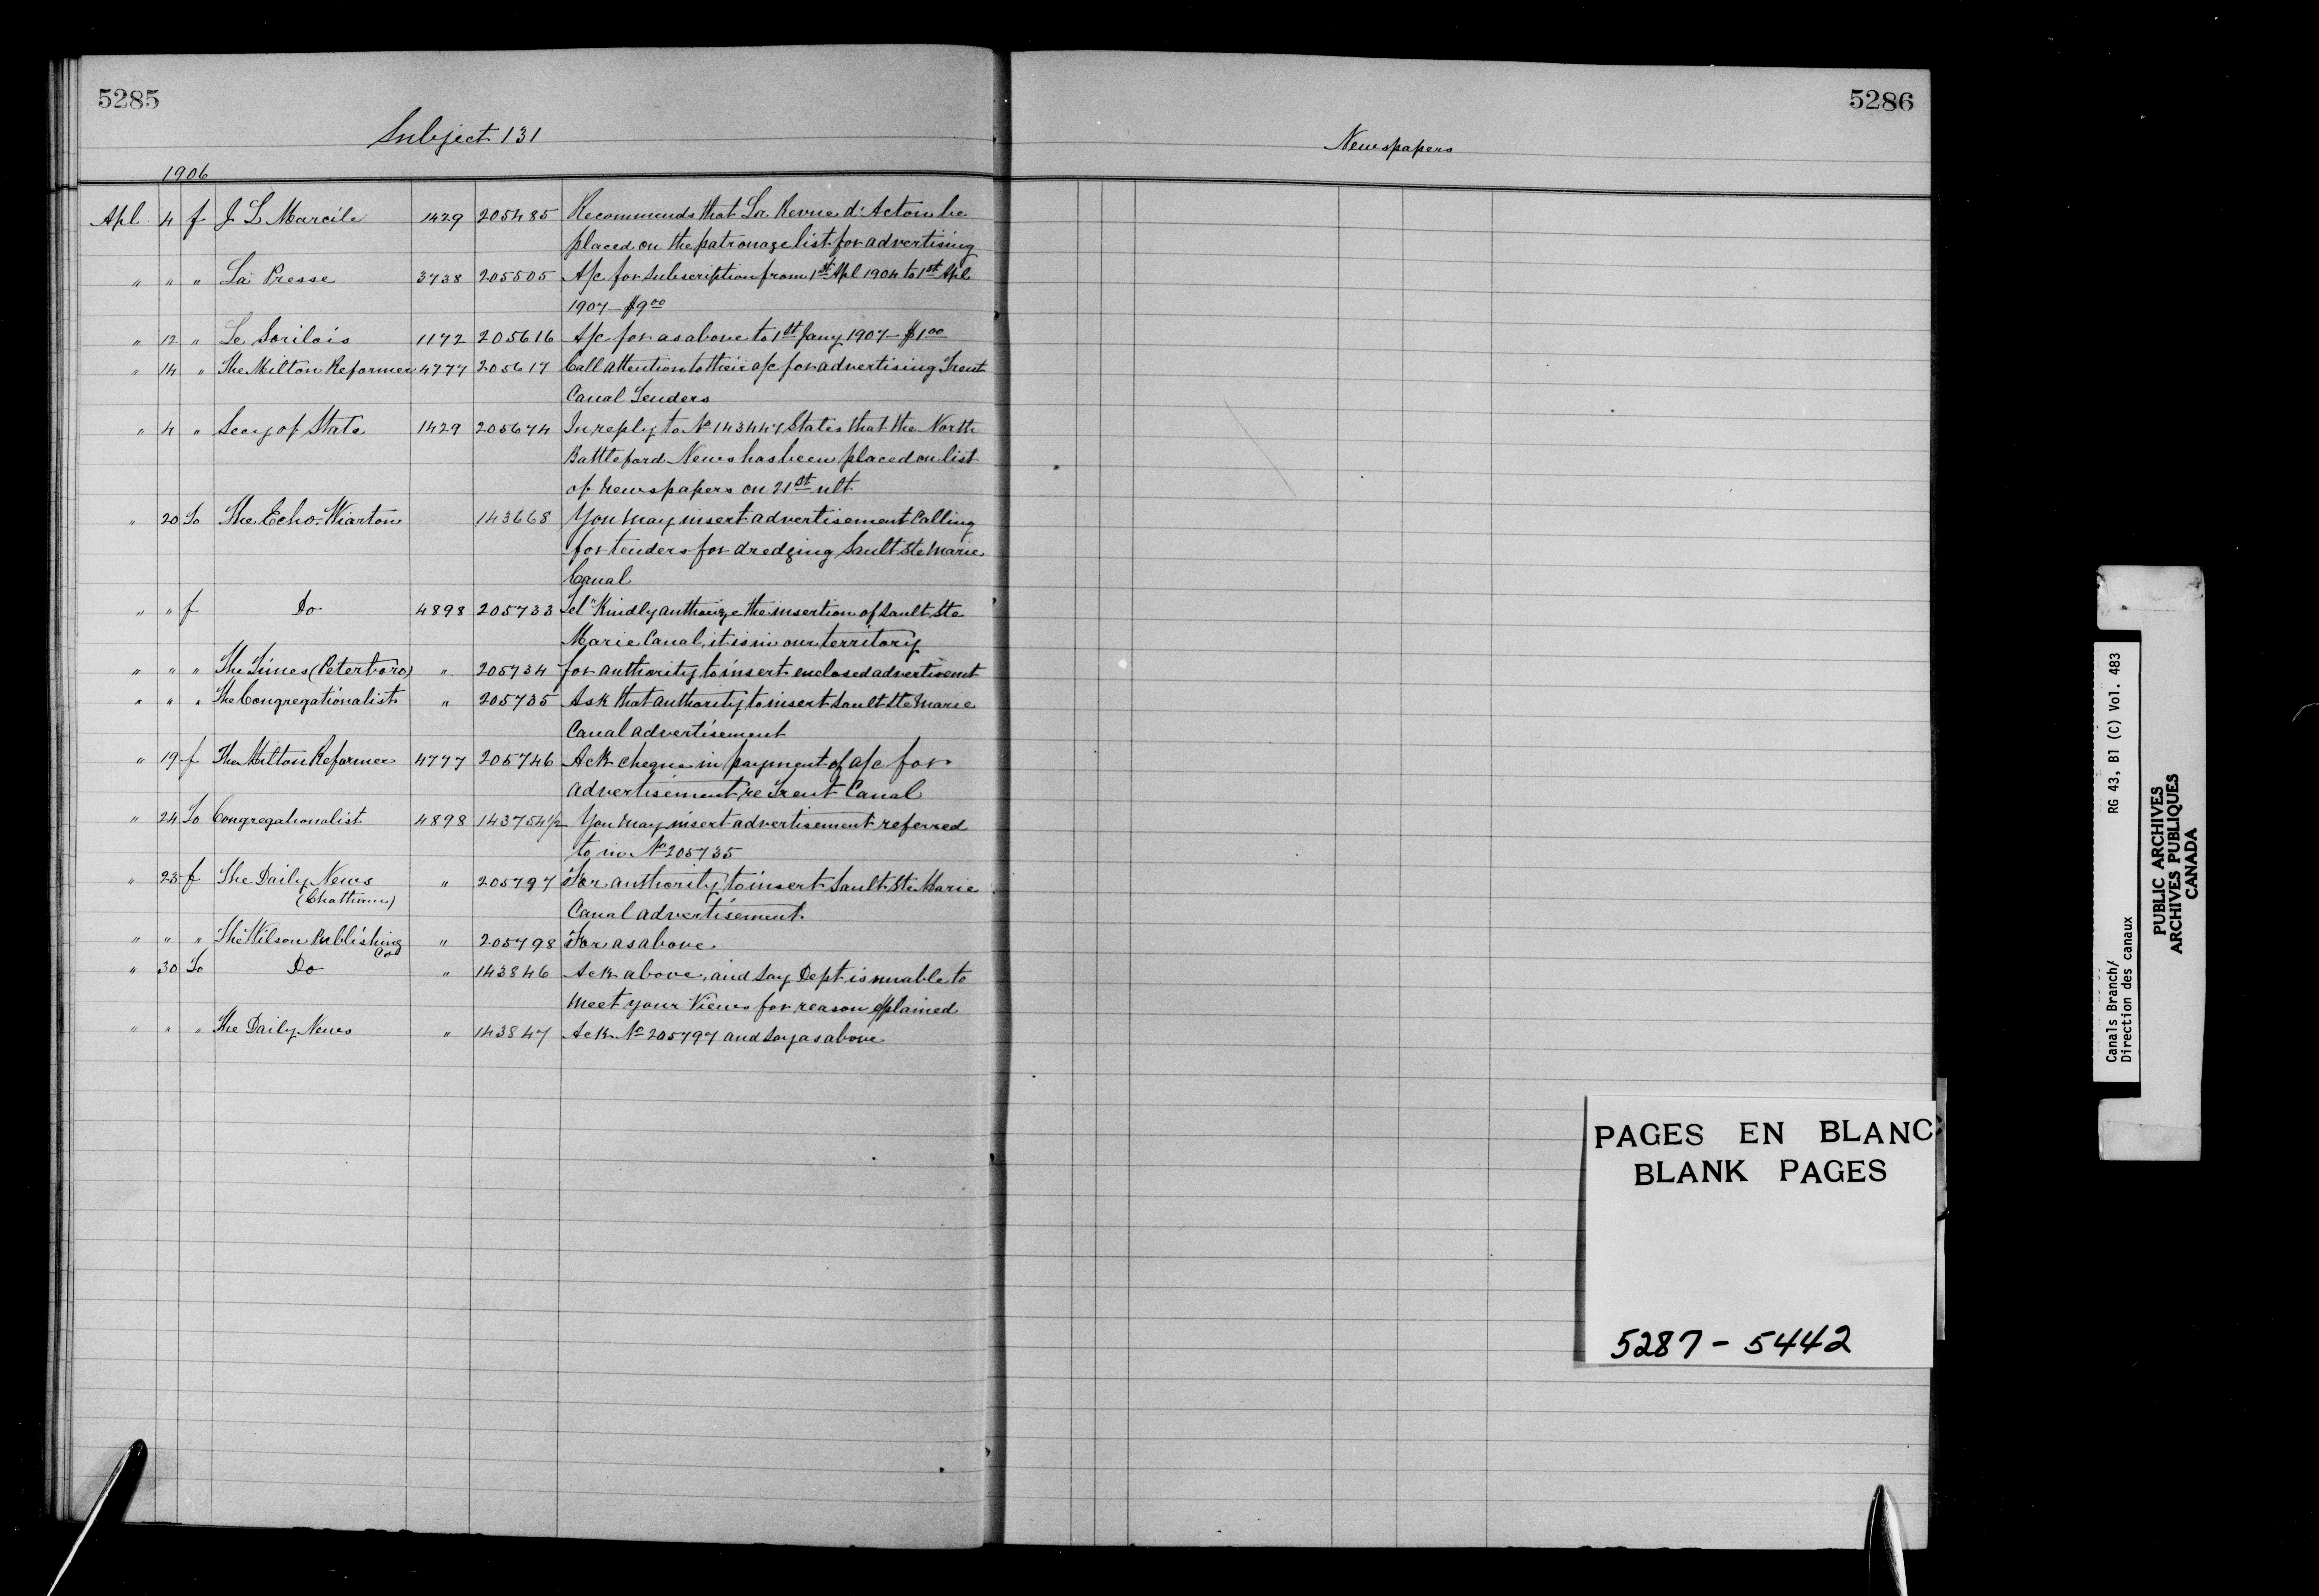 5285
Subject 131
1906
Apl 4 f J L Marcile 1429 205485 Recommends that La Revue d'Acton be
placed on the patronage list for advertising
" " " La Presse 3738 205505 A/c for subscription from 1st Apl 1904 to 1st Apl
1907 — $9.00
" 12 " Le Sorilois 1172 205616 A/c for as above to 1st Jany 1907 — $1.00
" 14 " The Milton Reformer 4777 205617 Call attention to their a/c for advertising Trent
Canal Tenders
" 4 " Secy of State 1429 205674 In reply to No 143447 States that the North
Battleford News has been placed on list
of Newspapers on 21st ult
" 20 To The Echo-Wiarton 143668 You may insert advertisement Calling
for tenders for dredging Sault Ste Marie
Canal
" " f Do 4898 205733 Tel "Kindly authorize the insertion of Sault Ste
Marie Canal, it is in our territory
" " " The Times (Peterboro) " 205734 for authority to insert enclosed advertisemt
" " " The Congregationalist " 205735 Ask that authority to insert Sault Ste Marie
Canal advertisement
" 19 f The Milton Reformer 4777 205746 Ack cheque in payment of a/c for
advertisement re Trent Canal
" 24 To Congregationalist 4898 143754 1/2 You may insert advertisement referred
to in No 205735
" 23 f The Daily News " 205797 For authority to insert Sault Ste Marie
(Chatham)
Canal advertisement
" " " The Wilson Publishing Co " 205798 For as above
" 30 To Do " 143846 Ack above, and say Dept is unable to
meet your Views for reason explained
" " " The Daily News " 143847 Ack No 205797 and say as above
5286
Newspapers
PAGES EN BLANC
BLANK PAGES
5287 - 5442
Canals Branch/
Direction des canaux
RG 43, B1 (C) Vol. 483
PUBLIC ARCHIVES
ARCHIVES PUBLIQUES
CANADA